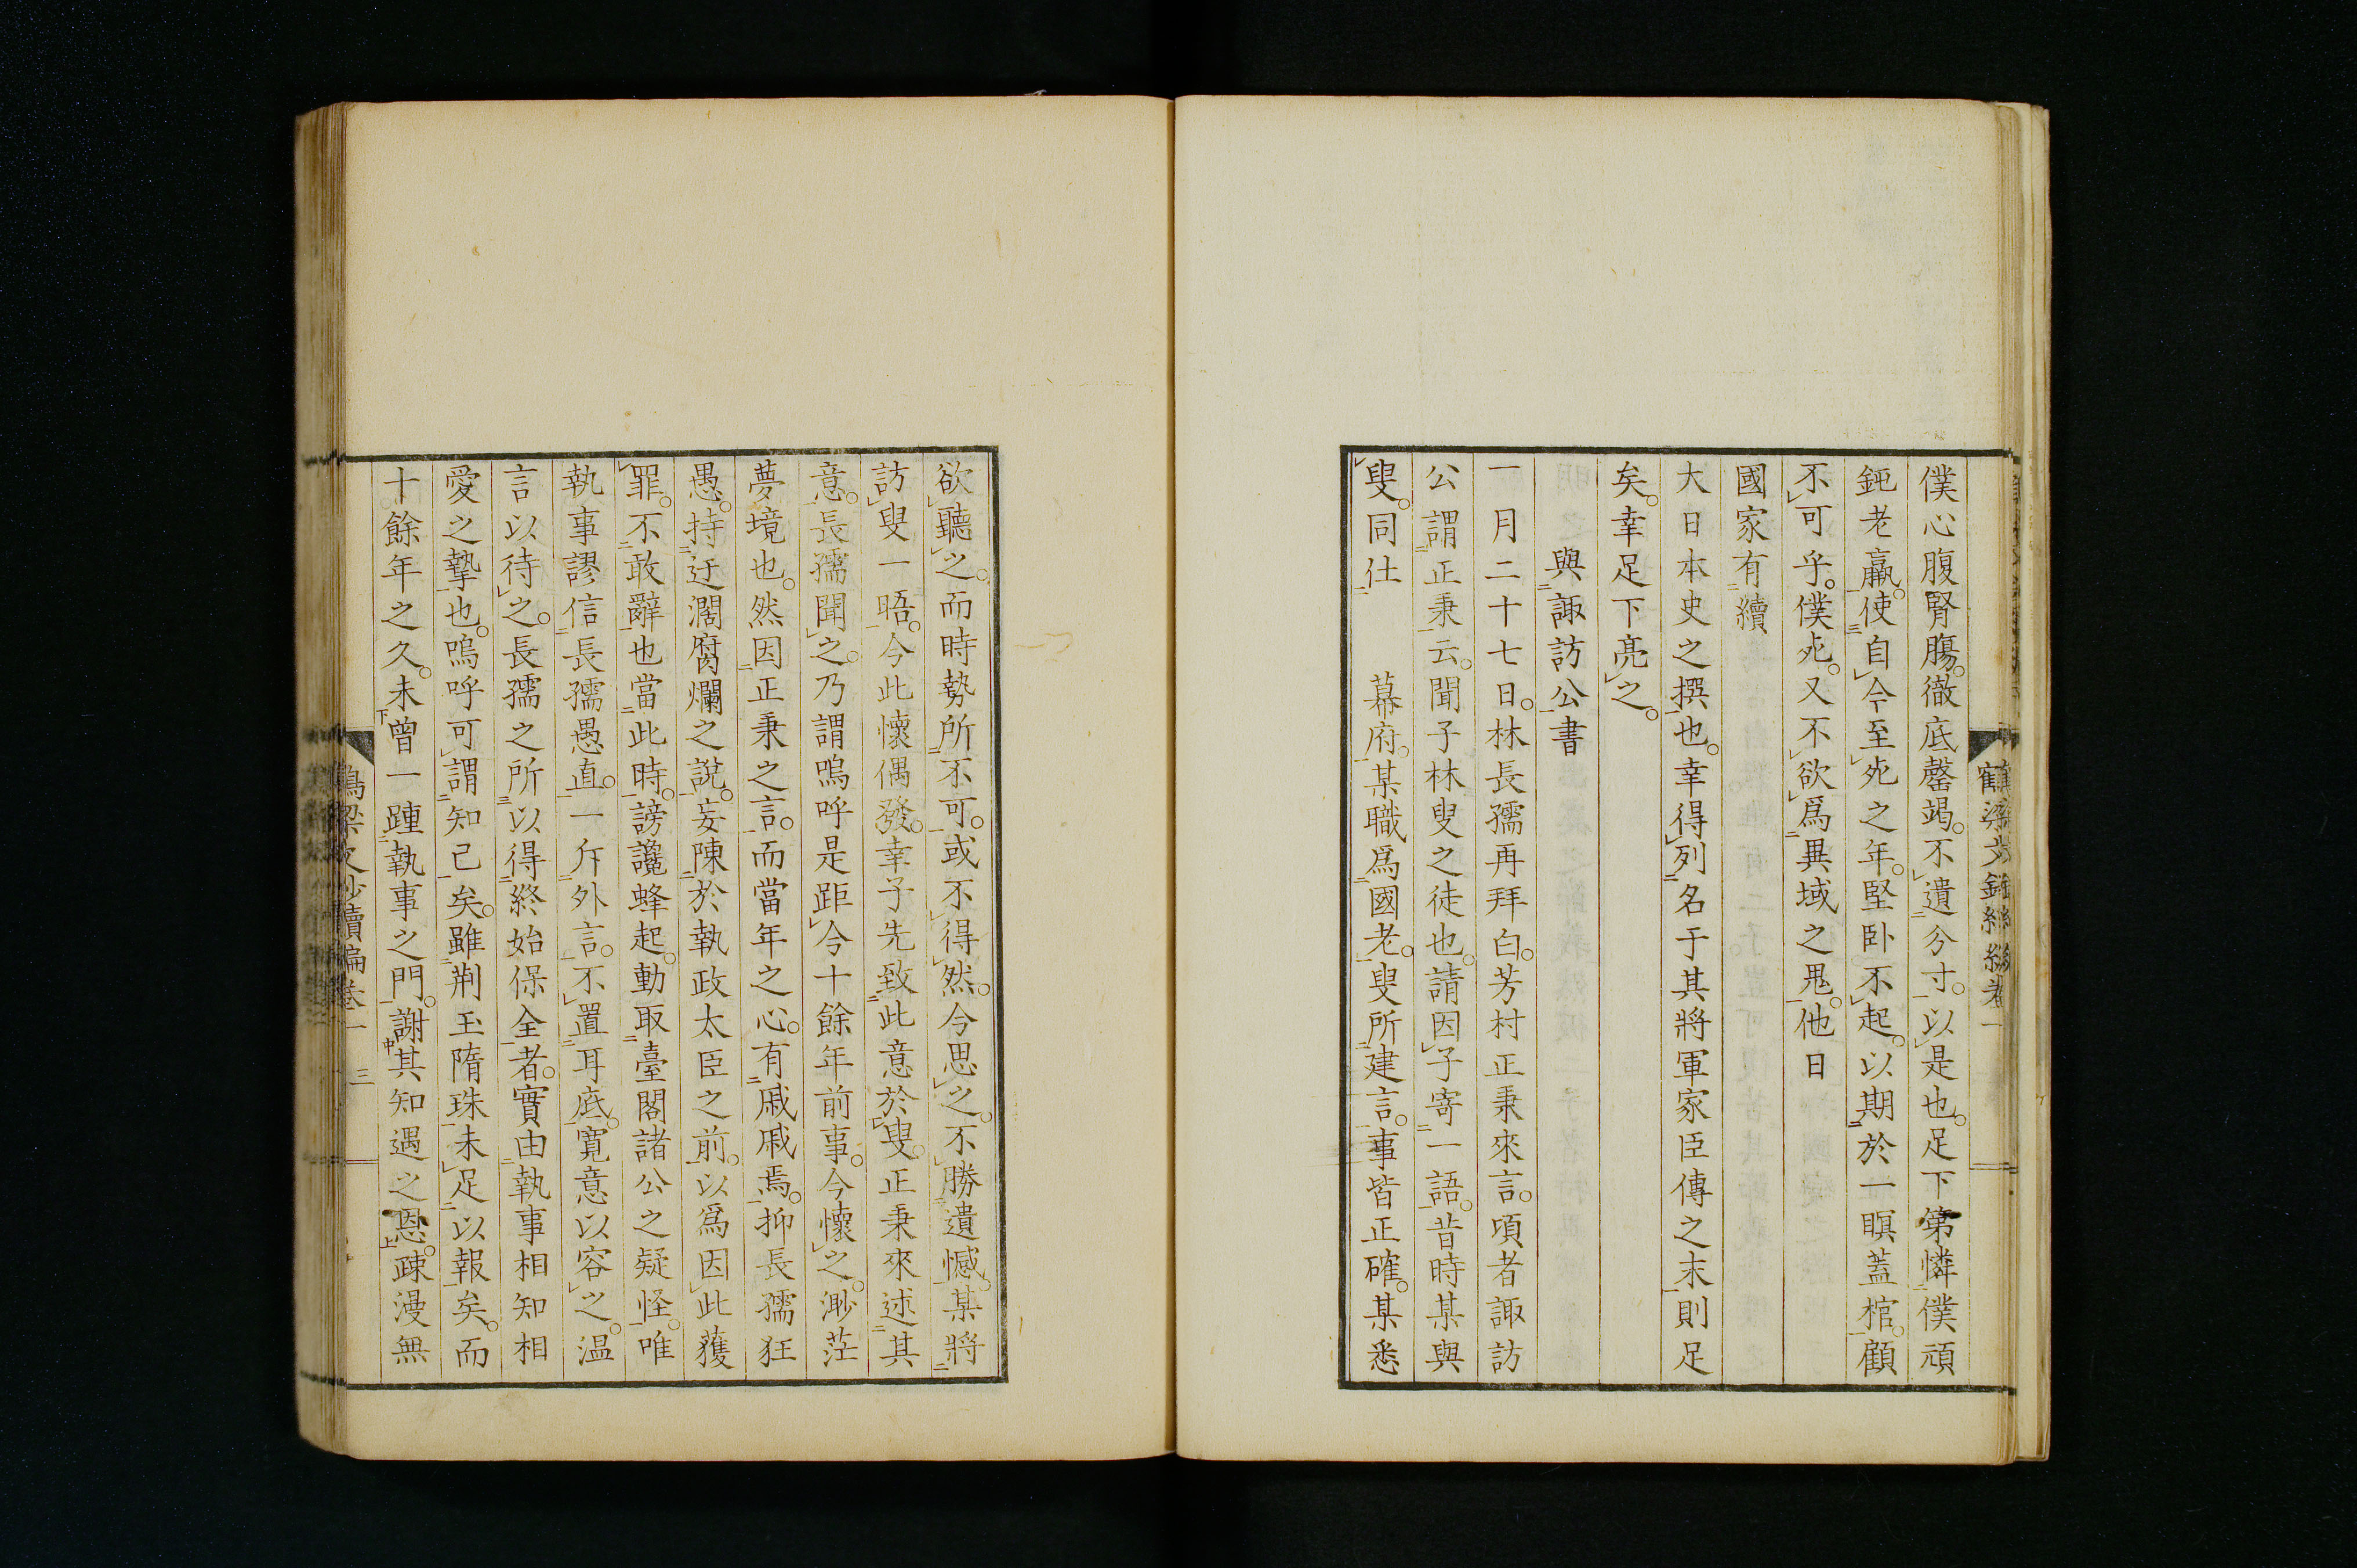 僕心腹腎腸。徹底罄竭。不遺分寸。以是也。足下第憐僕頑
鈍老羸。使自今至死之年。堅卧不起。以期於一瞑蓋棺。顧
不可乎。僕死。又不欲爲異域之鬼。他日
國家有續
大日本史之撰也。幸得列名于其將軍家臣傳之末。則足
矣。幸足下亮之。
與諏訪公書
一月二十七日。林長孺再拜白。芳村正秉來言。頃者諏訪
公謂正秉云。聞子林叟之徒也。請因子寄一語。昔時某與
叟。同仕　幕府。某職爲國老。叟所建言。事皆正確。某悉
欲聽之。而時勢所不可。或不得然。今思之。不勝遺憾。某將
訪叟一晤。今此懷偶發。幸子先致此意於叟。正秉來述其
意。長孺聞之。乃謂嗚呼是距今十餘年前事。今懷之。渺茫
夢境也。然因正秉之言。而當年之心。有戚戚焉。抑長孺狂
愚。持迂濶腐爛之說。妄陳於執政太臣之前。以爲因此獲
罪。不敢辭也當此時。謗讒蜂起。動取臺閣諸公之疑怪。唯
執事謬信長孺愚直。一斥外言。不置耳底。寛意以容之。温
言以待之。長孺之所以得終始保全者。實由執事相知相
愛之摯也。嗚呼可謂知己矣。雖荆玉隋珠。未足以報矣。而
十餘年之久。未曾一踵執事之門。謝其知遇之恩。疎漫無
三